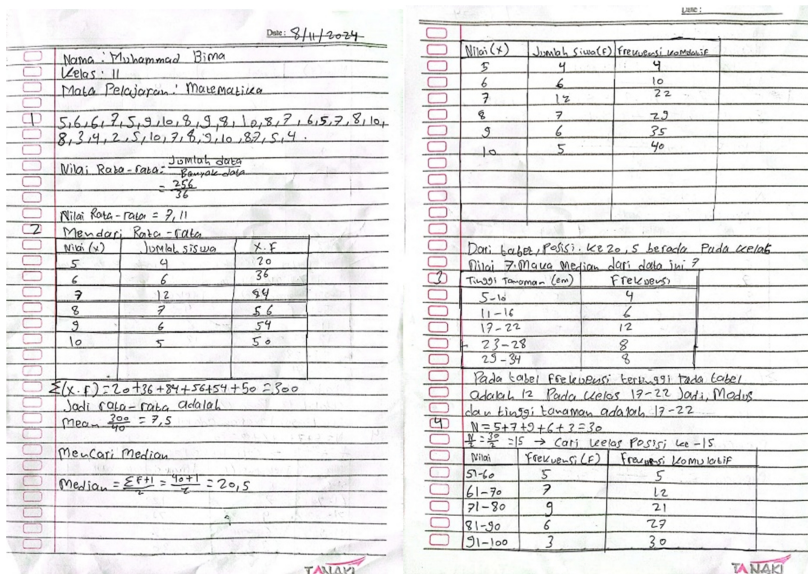 Date: 8/11/2024
Nama: Muhammad Bima
Kelas: 11
Mata Pelajaran: Matematika
1 5,6,6,7,5,9,10,8,9,8,10,8,7,6,5,7,8,10,
8,3,4,2,5,10,7,8,9,10,87,5,4.
Nilai Rata-rata = Jumlah data / Banyak data
= 256 / 36
Nilai Rata-rata = 7,11
2 Mencari Rata-rata
Nilai (x) Jumlah siswa X.F
5 4 20
6 6 36
7 12 84
8 7 56
9 6 54
10 5 50
Σ(x.F) = 20+36+84+56+54+50 = 300
Jadi rata-rata adalah
Mean 300/40 = 7,5
Mencari Median
Median = ΣF+1/2 = 40+1/2 = 20,5
TANAKI
Date:
Nilai (x) Jumlah siswa (F) Frekuensi komulatif
5 4 4
6 6 10
7 12 22
8 7 29
9 6 35
10 5 40
Dari tabel, Posisi. Ke 20,5 berada Pada kelas
Nilai 7. Maka Median dari data ini 7
3 Tinggi Tanaman (em) Frekuensi
5-10 4
11-16 6
17-22 12
23-28 8
29-34 8
Pada tabel Frekuensi tertinggi tada tabel
adalah 12 Pada kelas 17-22 Jadi, Modus
dan tinggi tanaman adalah 17-22
4 N = 5+7+9+6+3 = 30
N/2 = 30/2 = 15 → Cari kelas Posisi ke-15
Nilai Frekuensi (F) Frekuensi Komulatif
51-60 5 5
61-70 7 12
71-80 9 21
81-90 6 27
91-100 3 30
TANAKI